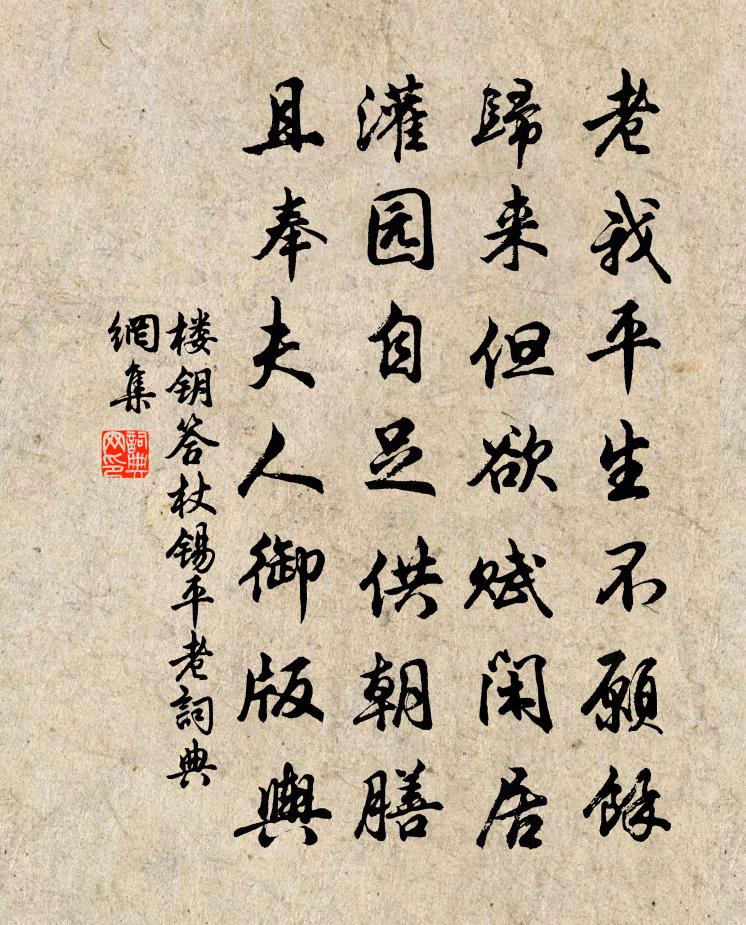 老我平生不願餘
歸来但欲赋闲居
灌园自足供朝膳
且奉夫人御版輿
楼钥答杖锡平老詞典
網集
詞典
网印